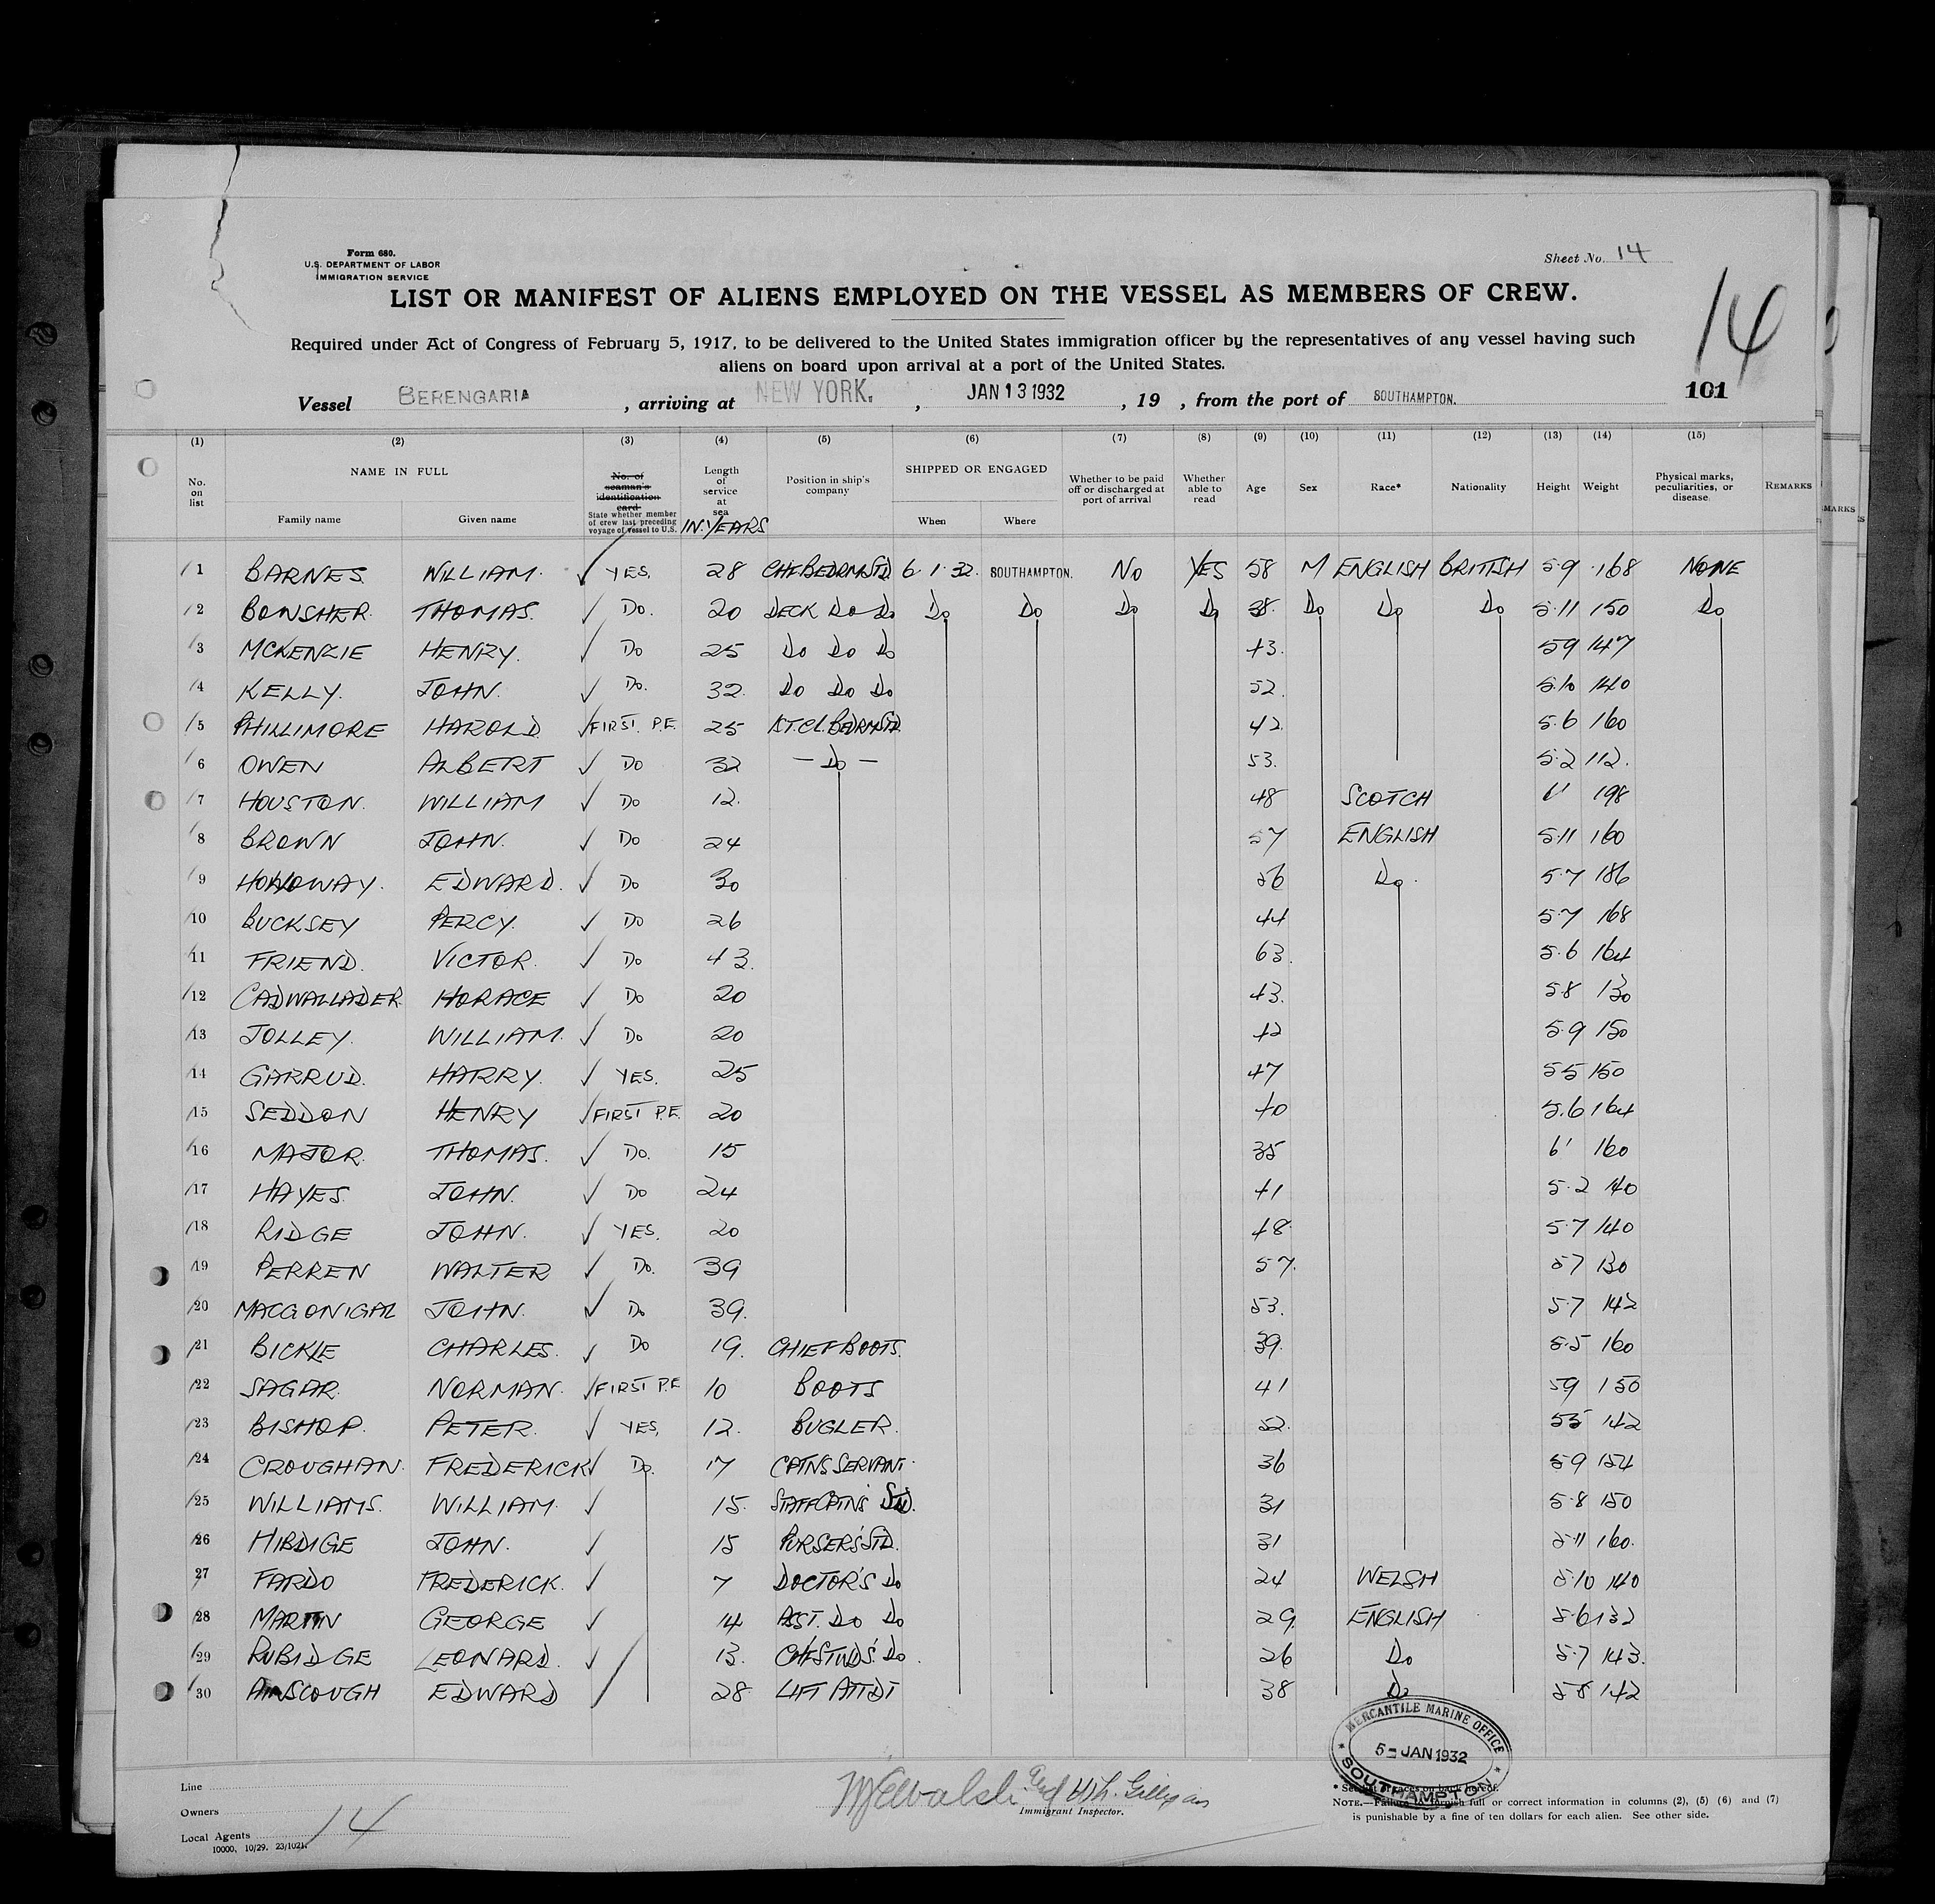 Form 680.
U.S. DEPARTMENT OF LABOR
IMMIGRATION SERVICE
Sheet No. 14
LIST OR MANIFEST OF ALIENS EMPLOYED ON THE VESSEL AS MEMBERS OF CREW.
14
Required under Act of Congress of February 5, 1917, to be delivered to the United States immigration officer by the representatives of any vessel having such
aliens on board upon arrival at a port of the United States.
101
Vessel BERENGARIA, arriving at NEW YORK., JAN 13 1932, 19 , from the port of SOUTHAMPTON.
(1) (2) (3) (4) (5) (6) (7) (8) (9) (10) (11) (12) (13) (14) (15)
No. on list
NAME IN FULL
Family name Given name
No. of seaman's identification card
State whether member of crew last preceding voyage of vessel to U.S.
Length of service at sea
IN YEARS
Position in ship's company
SHIPPED OR ENGAGED
When Where
Whether to be paid off or discharged at port of arrival
Whether able to read
Age Sex Race* Nationality Height Weight
Physical marks, peculiarities, or disease
REMARKS
MARKS
1 BARNES WILLIAM. YES. 28 CHF.BEDRM.STD. 6.1.32. SOUTHAMPTON. NO YES 58 M ENGLISH BRITISH 5.9 168 NONE
2 BONSHER. THOMAS. DO. 20 DECK DO DO DO DO DO DO 38. DO DO DO 5.11 150 DO
3 MCKENZIE HENRY. DO 25 DO DO DO 43. 5 9 147
4 KELLY. JOHN. DO. 32. DO DO DO 52. 5.10 140
5 PHILLIMORE HAROLD FIRST. P.E. 25 1ST.CL.BEDRM.STD. 42. 5.6 160
6 OWEN ALBERT DO 32 – DO – 53. 5.2 112.
7 HOUSTON. WILLIAM DO 12. 48 SCOTCH 6' 198
8 BROWN JOHN. DO 24 57 ENGLISH 5.11 160
9 HOLLOWAY. EDWARD. DO 30 56 DO. 5.7 186
10 BUCKSEY PERCY. DO 26 44 5.7 168
11 FRIEND. VICTOR. DO 43. 63. 5.6 164
12 CADWALLADER. HORACE DO 20 43. 5.8 130
13 JOLLEY. WILLIAM. DO 20 42 5.9 150
14 GARRUD. HARRY. YES. 25 47 5 5 150
15 SEDDON HENRY FIRST P.E. 20 40 5.6 164
16 MAJOR. THOMAS. DO. 15 35 6' 160
17 HAYES. JOHN. DO 24 41 5.2 140
18 RIDGE JOHN. YES. 20 48. 5.7 140
19 PERREN WALTER DO. 39 57. 5 7 130
20 MACGONIGAL JOHN. DO 39. 53. 5.7 142
21 BICKLE CHARLES. DO 19. CHIEF BOOTS. 39. 5.5 160
22 SAGAR. NORMAN. FIRST P.E 10 BOOTS 41 5 9 150
23 BISHOP. PETER. YES, 12. BUGLER. 52. 5 5 142
24 CROUGHAN. FREDERICK DO. 17 CPTNS SERVANT. 36 5 9 154
25 WILLIAMS. WILLIAM. 15. STAFF CPTNS' STD. 31 5.8 150
26 HIBDIGE JOHN. 15 PURSER'S STD. 31 5 11 160.
27 FARDO FREDERICK. 7 DOCTOR'S DO 24 WELSH 5.10 140
28 MARTIN GEORGE 14 ASST. DO DO 29. ENGLISH 5.6 132
29 RUBIDGE LEONARD. 13. CHF STWDS' DO. 26 DO 5.7 143.
30 AINSCOUGH EDWARD 28. LIFT ATTDT 38 DO 5 8 142
MERCANTILE MARINE OFFICE
5 – JAN 1932
SOUTHAMPTON
Line
Owners
Local Agents
14
10000, 10/29. 23/1021.
Immigrant Inspector.
* See list of races on back hereof.
NOTE.—Failure to furnish full or correct information in columns (2), (5) (6) and (7)
is punishable by a fine of ten dollars for each alien. See other side.